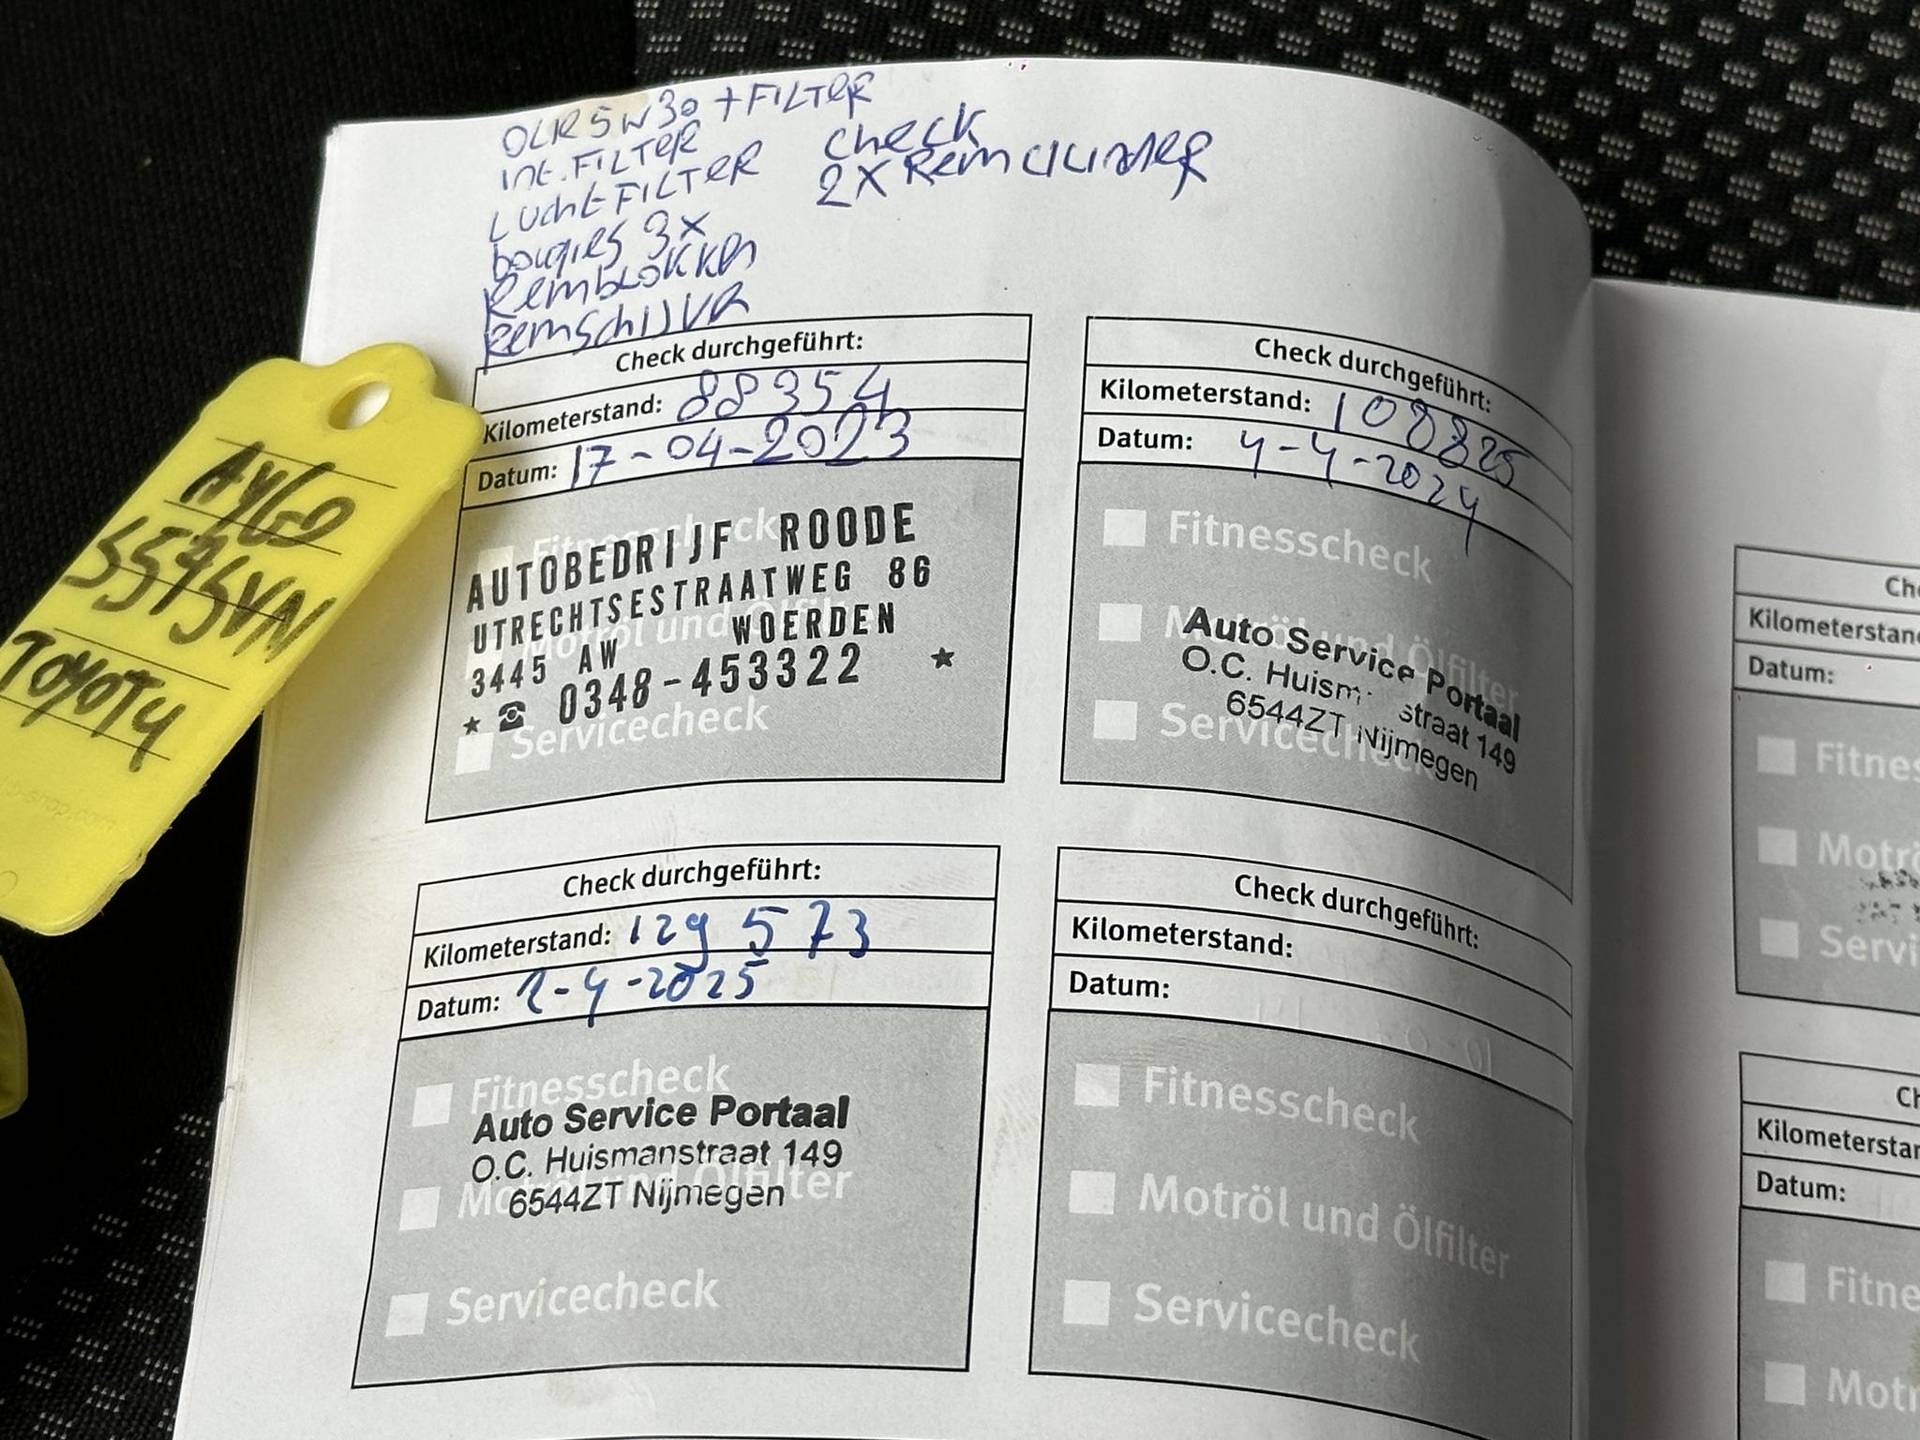 OLIE 5W30 + FILTER
INT. FILTER
LUCHTFILTER
bougies 3x
Remblokken
Remschijven
check
2X Remcilinder
Check durchgeführt:
Kilometerstand: 88354
Datum: 17-04-2023
Fitnesscheck
Motröl und Ölfilter
Servicecheck
AUTOBEDRIJF ROODE
UTRECHTSESTRAATWEG 86
3445 AW WOERDEN
★ ☎ 0348-453322 ★
Check durchgeführt:
Kilometerstand: 108825
Datum: 4-4-2024
Fitnesscheck
Motröl und Ölfilter
Servicecheck
Auto Service Portaal
O.C. Huism straat 149
6544ZT Nijmegen
AYGO
TOYOTA
Check durchgeführt:
Kilometerstand: 129573
Datum: 2-4-2025
Fitnesscheck
Motröl und Ölfilter
Servicecheck
Auto Service Portaal
O.C. Huismanstraat 149
6544ZT Nijmegen
Check durchgeführt:
Kilometerstand:
Datum:
Fitnesscheck
Motröl und Ölfilter
Servicecheck
Ch
Kilometerstand
Datum:
Fitnes
Motrö
Servi
Ch
Kilometerstan
Datum:
Fitne
Motr